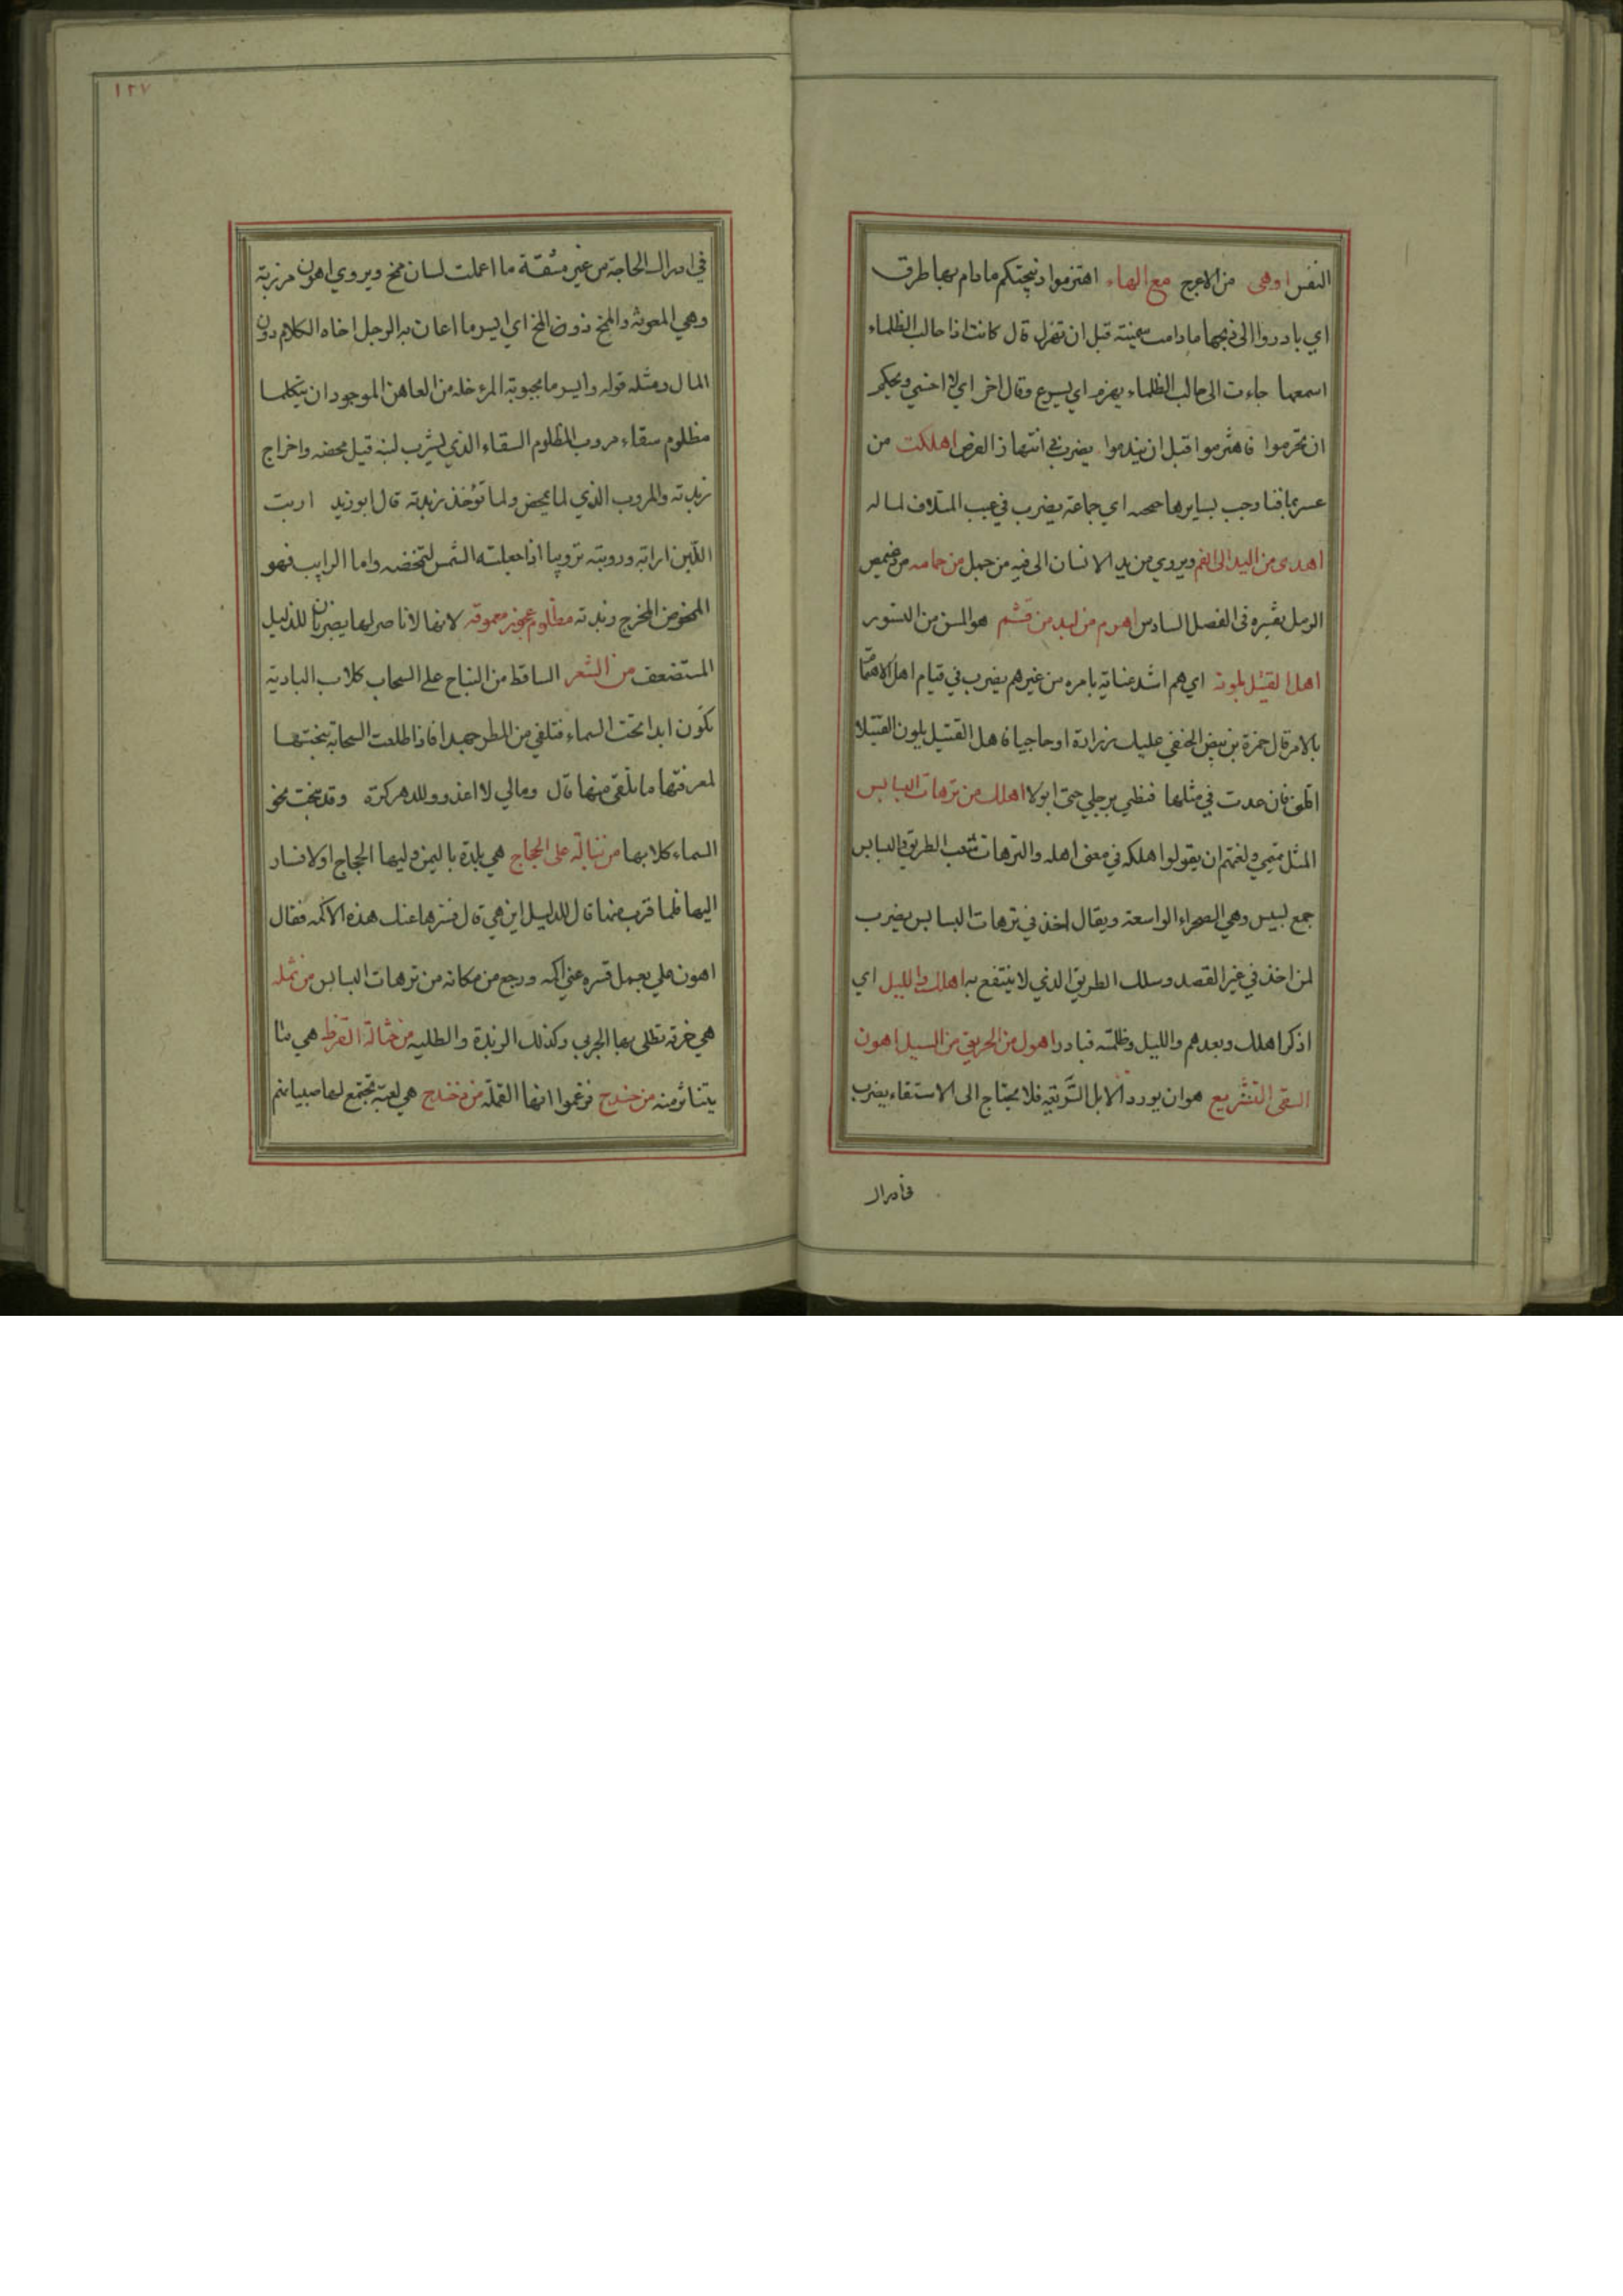 النفس اوهى من الاعرج مع الهاء اهتزموا ذبيحتكم مادام بها طرق
اي بادروا الى ذبحها مادامت سمينة قبل ان تهزل قال كانت اذا حالب الظلماء
اسمعها جاءت الى حالب الظلماء يهزم اي يسرع وقال اخر اي لا اخشي ويحكم
ان تحرموا فاهتزموا قبل ان يندموا يضرب في انتهاز الفرص اهلكت من
عشر ثمانيا وجب بسايرها اي جماعة يضرب في عيب المتلاف لماله
اهدى من اليد الى الفم ويروى من يد الانسان الى فيه من جمل من حمامه من دعيميص
الرمل تفسيره في الفصل السادس اهرم من لبد من قشعم هو المسن من النسور
اهل القتيل يلونه اي هم اشد عناية بامره من غيرهم يضرب في قيام اهل الاهتمام
بالامر قال حمزة بن بيض الحنفي عليك بزرارة او حاجبا فاهل القتيل يلون القتيلا
اقلني فان عدت في مثلها فنطي برجلي حتى ابولا اهلك من ترهات البسابس
المثل تميمي ولغتهم ان يقولوا هلكه في معنى اهله والترهات تشعب الطريق والبسابس
جمع بسبس وهي الصحراء الواسعة ويقال اخذ في ترهات البسابس يضرب
لمن اخذ في غير القصد وسلك الطريق الذي لا ينتفع به اهلك والليل اي
اذكر اهلك وبعدهم والليل وظلمته فبادر اهول من الحريق من السيل اهون
السقى التشريع هو ان يورد الابل الشريعة فلا يحتاج الى الاستقاء يضرب
في ادراك
١٢٧
في ادراك الحاجة من غير مشقة ما اعملت لسان ممخ ويروى اهون مرزية
وهي المعونة والممخ ذو من المخ اي ايسر ما اعان به الرجل اخاه الكلام دون
المال ومثله قوله وايسر ما يحبو به المرء خله من العاهن الموجود ان يتكلما
مظلوم سقاء مروب المظلوم السقاء الذي يشرب لبنه قبل مخضه واخراج
زبدته والمروب الذي لما يمخض ولما تؤخذ زبدته قال ابو زيد اربت
اللبن ارابة وروبته ترويبا اذا جعلته الشمس لتمخضه واما الرايب فهو
الممخوض المخرج زبدته مظلوم عجوز معموقه لانها لا ناصر لها يضربان للذليل
المستضعف من الشعر الساقط من النباح على السحاب كلاب البادية
تكون ابدا تحت السماء فتلقى من المطر جهدا فاذا طلعت السحابة نبحتها
لمعرفتها ما تلقى منها قال ومالي لا اغذو وللدهر كرة وقد نبحت نحو
السماء كلابها من تبالة على الحجاج هي بلدة باليمن وليها الحجاج اولا فسار
اليها فلما قرب منها قال للدليل اين هي قال تسترها عنك هذه الاكمه فقال
اهون علي بعمل تستره عني اكمه ورجع من مكانه من ترهات البسابس من ثملة
هي خرقة تطلى بها الجربى وكذلك الربذة والطليه من حثالة القرظ هي ما
يتناثر منه من حندج فزعموا انها القملة من دخندح هي لعبة تجتمع لها صبيانهم